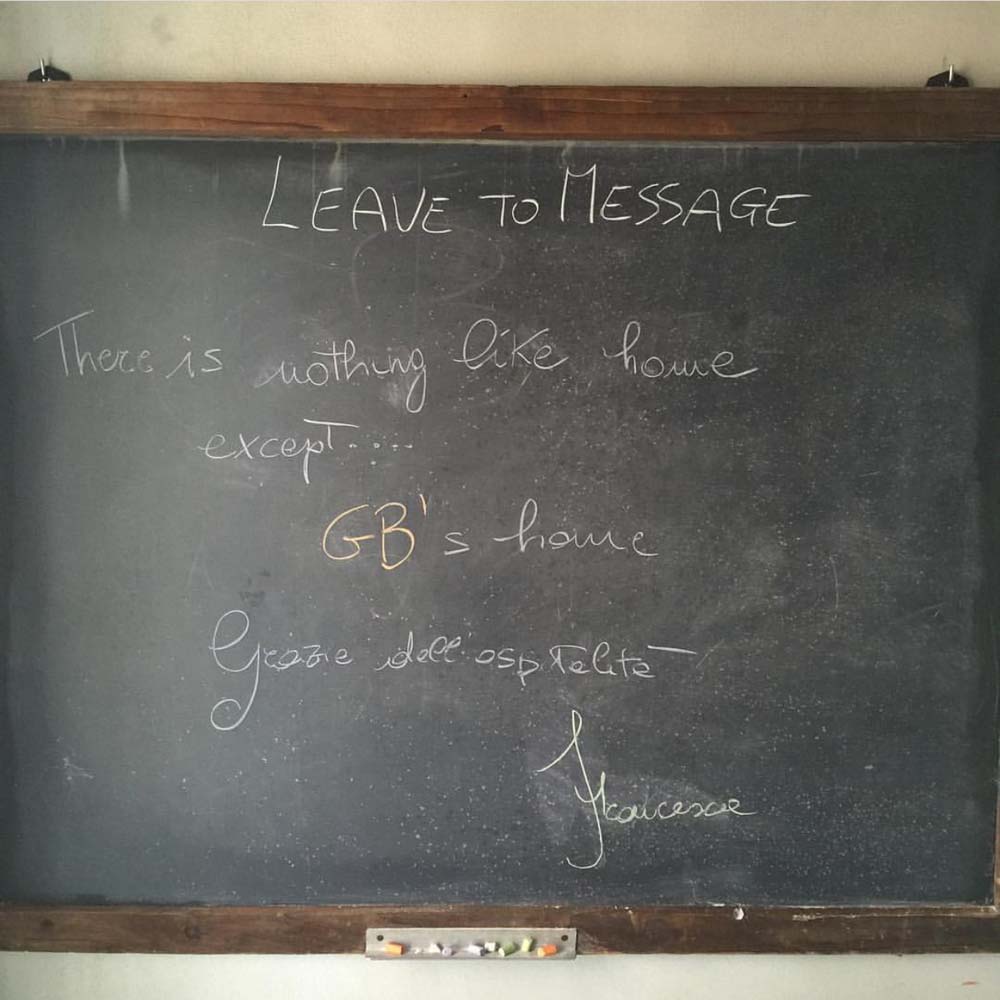 LEAVE TO MESSAGE
There is nothing like home
except.....
GB's home
Grazie dell'ospitalità
Francesca